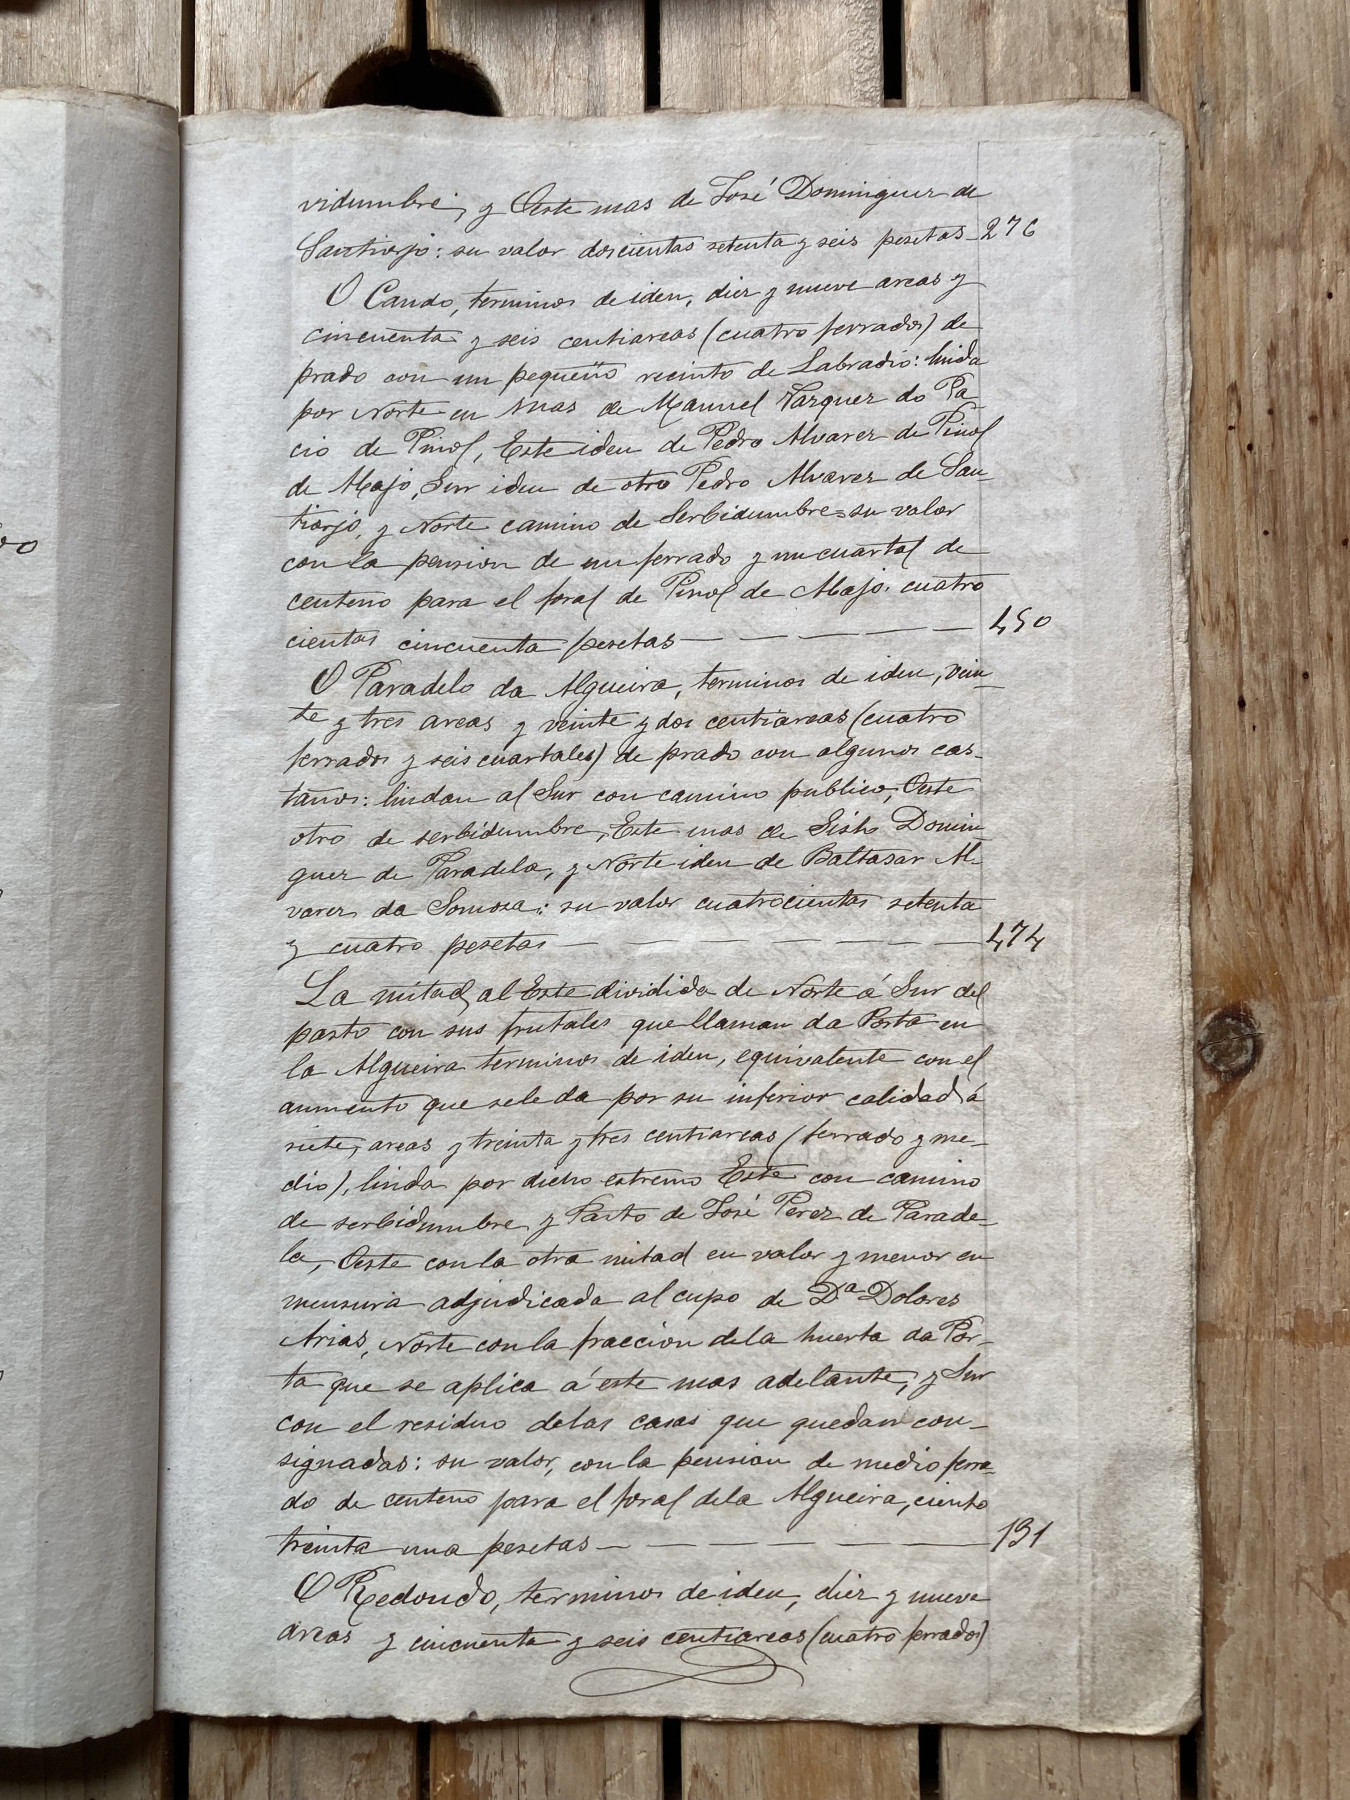 vidumbre, y Oeste mas de José Dominguez de
Santiorjo: su valor doscientas setenta y seis pesetas - 276
O Cando, terminos de iden, diez y nueve areas y
cincuenta y seis centiareas (cuatro ferrados) de
prado con un pequeño recinto de Labradio: linda
por Norte en mas de Manuel Vazquez do Pa
cio de Pinol, Este iden de Pedro Alvarez de Pinol
de Abajo, Sur iden de otro Pedro Alvarez de San-
tiorjo, y Norte camino de Serbidumbre = su valor
con la pension de un ferrado y un cuartal de
centeno para el foral de Pinol de Abajo. cuatro
cientas cincuenta pesetas — — — — — — 450
O Paradelo da Algueira, terminos de iden, vein-
te y tres areas y veinte y dos centiareas (cuatro
ferrados y seis cuartales) de prado con algunos cas-
taños: lindan al Sur con camino publico, Oeste
otro de serbidumbre, Este mas de Sisto Domin-
guez de Paradela, y Norte iden de Baltasar Al-
varez da Somosa: su valor cuatrocientas setenta
y cuatro pesetas — — — — — — — 474
La mitad, al Este dividida de Norte á Sur del
pasto con sus frutales que llaman da Porta en
la Algueira terminos de iden, equivalente con el
aumento que se le da por su inferior calidad á
siete, areas y treinta y tres centiareas (ferrado y me-
dio), linda por dicho estremo Este con camino
de serbidumbre y Pasto de José Perez de Parade-
la, Oeste con la otra mitad en valor y menor en
mensura adjudicada al cupo de Dª Dolores
Arias, Norte con la fraccion dela huerta da Por-
ta que se aplica á este mas adelante, y Sur
con el residuo delas casas que quedan con-
signadas: su valor, con la pension de medio ferra-
do de centeno para el foral dela Algueira, ciento
treinta una pesetas — — — — — — 131
O Redondo, terminos de iden, diez y nueve
areas y cincuenta y seis centiareas (cuatro ferrados)